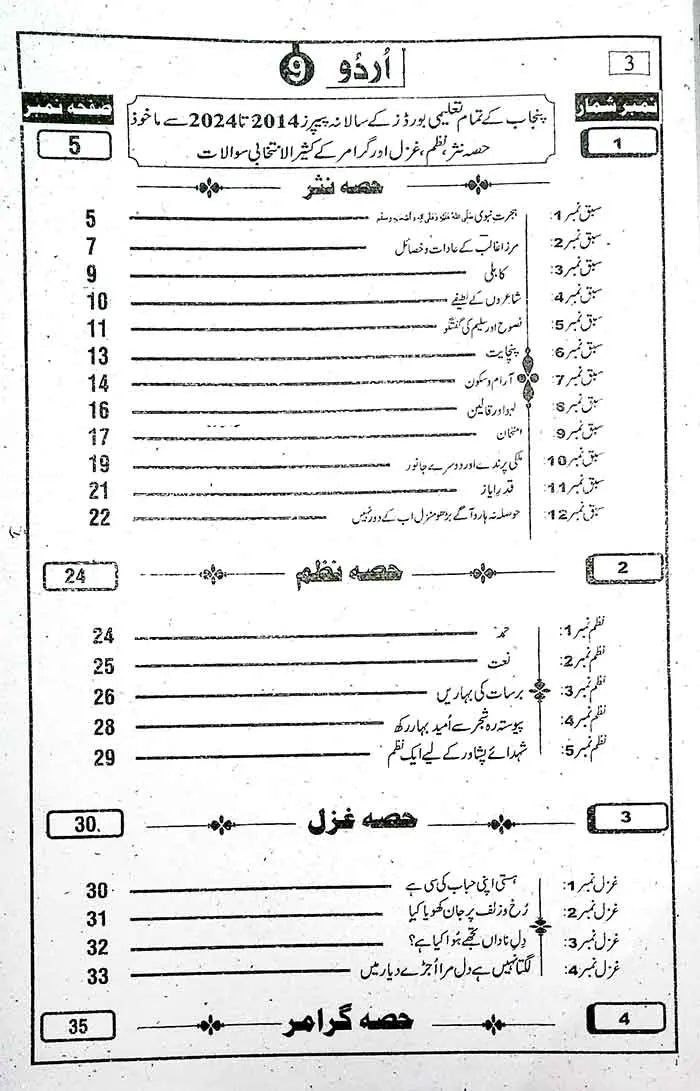 3
اُردُو 9
نمبر شمار
صفحہ نمبر
1
پنجاب کے تمام تعلیمی بورڈز کے سالانہ پیپرز 2014 تا 2024 سے ماخوذ
حصہ نثر، نظم، غزل اور گرامر کے کثیر الانتخابی سوالات
5
حصہ نثر
سبق نمبر 1: ہجرت نبوی صَلَّى اللهُ عَلَيْهِ وَعَلَى آلِهِ وَأَصْحَابِهِ وَسَلَّم 5
سبق نمبر 2: مرزا غالب کے عادات و خصائل 7
سبق نمبر 3: کاہلی 9
سبق نمبر 4: شاعروں کے لطیفے 10
سبق نمبر 5: نصوح اور سلیم کی گفتگو 11
سبق نمبر 6: پنچایت 13
سبق نمبر 7: آرام و سکون 14
سبق نمبر 8: لہو اور قالین 16
سبق نمبر 9: امتحان 17
سبق نمبر 10: ملکی پرندے اور دوسرے جانور 19
سبق نمبر 11: قدرِ ایاز 21
سبق نمبر 12: حوصلہ نہ ہارو آگے بڑھو منزل اب کے دور نہیں 22
2 حصہ نظم 24
نظم نمبر 1: حمد 24
نظم نمبر 2: نعت 25
نظم نمبر 3: برسات کی بہاریں 26
نظم نمبر 4: پیوستہ رہ شجر سے اُمید بہار رکھ 28
نظم نمبر 5: شہدائے پشاور کے لیے ایک نظم 29
3 حصہ غزل 30.
غزل نمبر 1: ہستی اپنی حباب کی سی ہے 30
غزل نمبر 2: رُخ و زلف پر جان کھویا کیا 31
غزل نمبر 3: دِلِ ناداں تجھے ہُوا کیا ہے؟ 32
غزل نمبر 4: لگتا نہیں ہے دل مرا اُجڑے دیار میں 33
4 حصہ گرامر 35